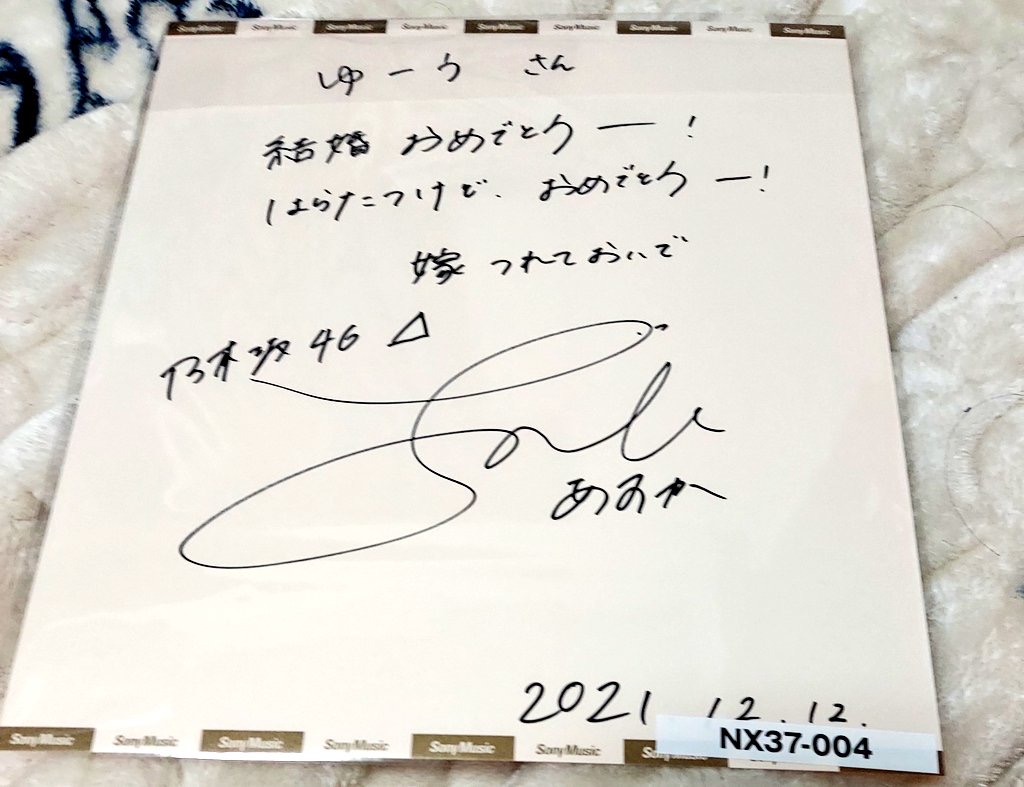 Sony Music Sony Music Sony Music Sony Music Sony Music Sony Music Sony Music Sony Music Sony Music
ゆーう さん
結婚 おめでとうー!
はらたつけど、おめでとうー!
嫁 つれておいで
乃木坂46
あすか
2021.12.12.
NX37-004
Sony Music Sony Music Sony Music Sony Music Sony Music Sony Music Sony Music